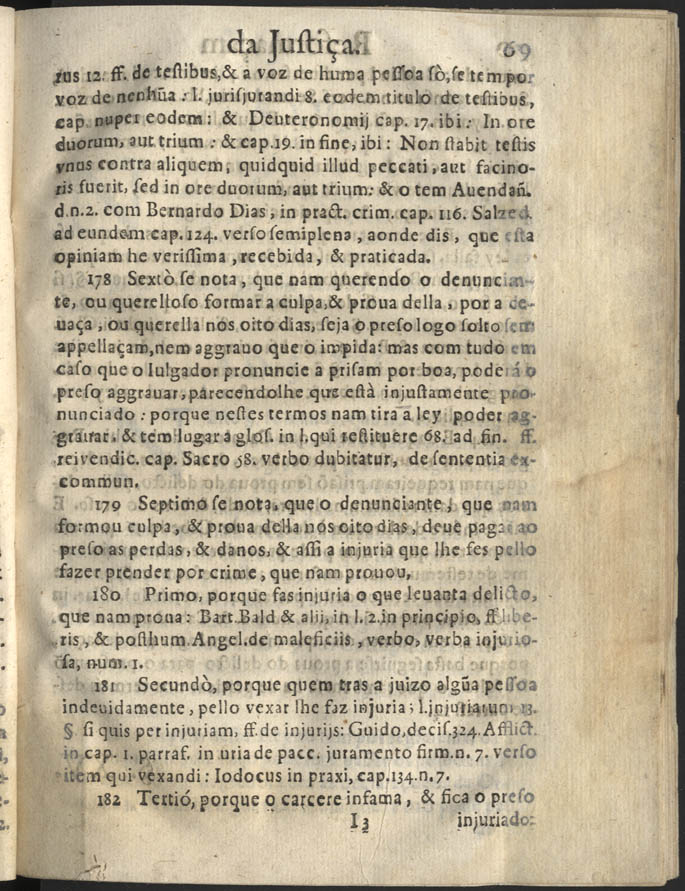 da Juſtiça. 69
rus 12. ff. de teſtibus,& a voz de huma peſſoa sò, ſe tem por
voz de nenhũa : l. jurisjurandi 8. eodem titulo de teſtibus,
cap. nuper eodem: & Deuteronomij cap. 17. ibi: In ore
duorum, aut trium : & cap.19. in fine, ibi: Non ſtabit teſtis
vnus contra aliquem, quidquid illud peccati, aut facino-
ris fuerit, ſed in ore duorum, aut trium: & o tem Auendañ.
d.n.2. com Bernardo Dias, in pract. crim. cap. 116. Salzed.
ad eundem cap.124. verſo ſemiplena, aonde dis, que eſta
opiniam he veriſſima, recebida, & praticada.
178 Sextò ſe nota, que nam querendo o denuncian-
te, ou querelloſo formar a culpa,& proua della, por a de-
uaça, ou querella nos oito dias, ſeja o preſo logo ſolto ſem
appellaçam,nem aggrauo que o impida: mas com tudo em
caſo que o Iulgador pronuncie a priſam por boa, poderá o
preſo aggrauar, parecendolhe que eſtà injuſtamente pro-
nunciado : porque neſtes termos nam tira a ley poder ag-
grauar, & tem lugar a gloſ. in l.qui reſtituere 68. ad fin. ff.
reivendic. cap. Sacro 58. verbo dubitatur, de ſententia ex-
commun.
179 Septimo ſe nota, que o denunciante, que nam
formou culpa, & proua della nos oito dias, deue pagar ao
preſo as perdas, & danos, & aſſi a injuria que lhe fes pello
fazer prender por crime, que nam prouou,
180 Primo, porque fas injuria o que leuanta delicto,
que nam proua: Bart. Bald & alii, in l. 2. in principio, ff libe-
ris, & poſthum Angel. de maleficiis, verbo, verba injurio-
ſa, num. 1.
181 Secundò, porque quem tras a juizo algũa peſſoa
indeuidamente, pello vexar lhe faz injuria; l. injuriarum 13.
§ ſi quis per injuriam, ff. de injurijs: Guido, deciſ.324. Afflict.
in cap. 1. parraf. in uria de pacc. juramento firm. n. 7. verſo
item qui vexandi: Iodocus in praxi, cap.134.n.7.
182 Tertió, porque o carcere infama, & fica o preſo
I3 injuriado: